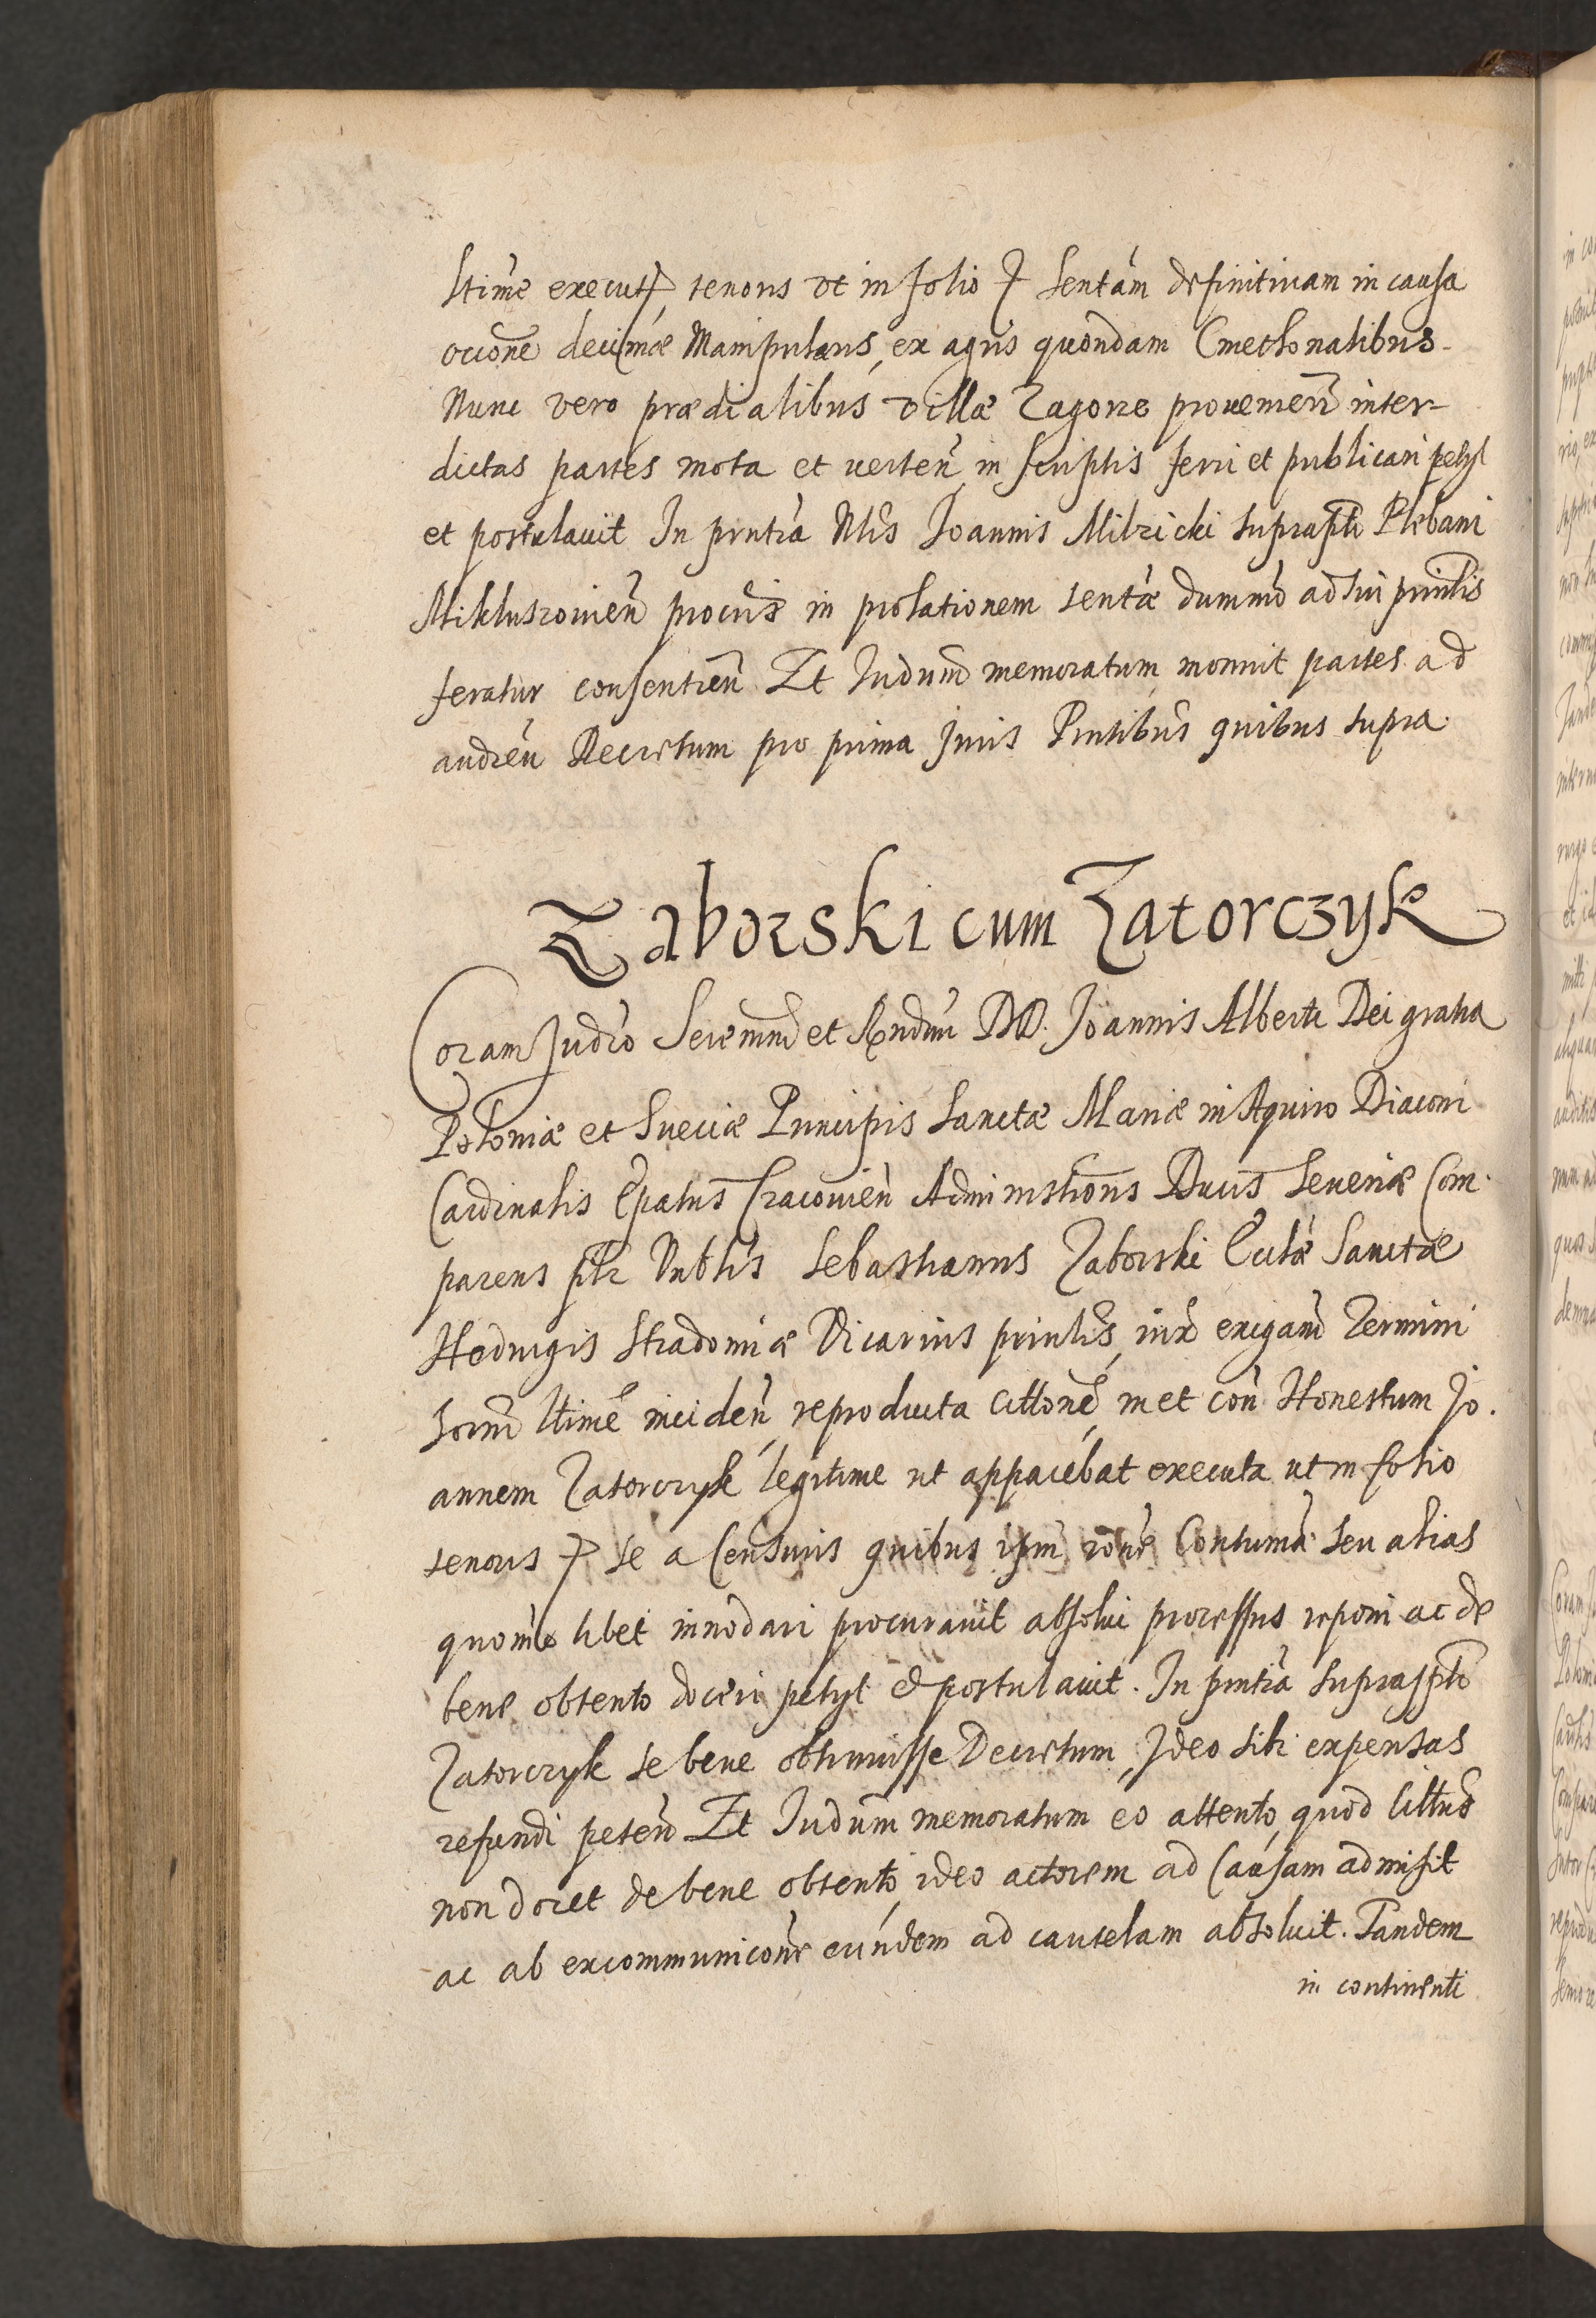 ltime execut tenoris ut in folio Sentam definitivam in causa
occone decimæ Manipularis, ex agris quondam Cmethonalibus
Nunc vero prædialibus villæ Zagorze provenien inter-
dictas partes mota et verten, in scriptis ferri et publicari petyt
et postulavit In pntia Nlis Joannis Milzicki supraspti Plebani
Mikluszovien procuris in prolationem sentæ dummo ad sui prinlis
feratur consentien Et Judum memoratum monuit partes ad
audien Decretum pro prima Juris Pntibus quibus supra.
Zaborski cum Zatorczyk
Coram Judio Serenmi et Rndmi DD. Joannis Alberti Dei gratia
Poloniæ et Sueciæ Principis Sanctæ Mariæ in Aquiro Diaconi
Cardinalis Epatus Cracovien Administronis Ducis Severiæ Com-
parens pltr Vnblis Sebastianus Zaborski Ecclæ Sanctæ
Hedvigis Stradomiæ Vicarius prinlis, in exigam Termini
horni ltime inciden, reproducta Cittone, in et con Honestum Jo.
annem Zatorczyk legitime ut apparebat executa ut in folio
tenoris se a Censuris quibus ipm rone Contuma seu alias
quomo libet innodari procuravit absolvi processus reponi ac de
bene obtento doceri petyt & postulavit. In pntia supraspto
Zatorczyk se bene obtinuisse Decretum, Ideo sibi expensas
refundi peten Et Judum memoratum eo attento, quod Cittus
non docet de bene obtento, ideo actorem ad Causam admisit
ac ab excommunicone eundem ad cautelam absolvit. Tandem
in continenti